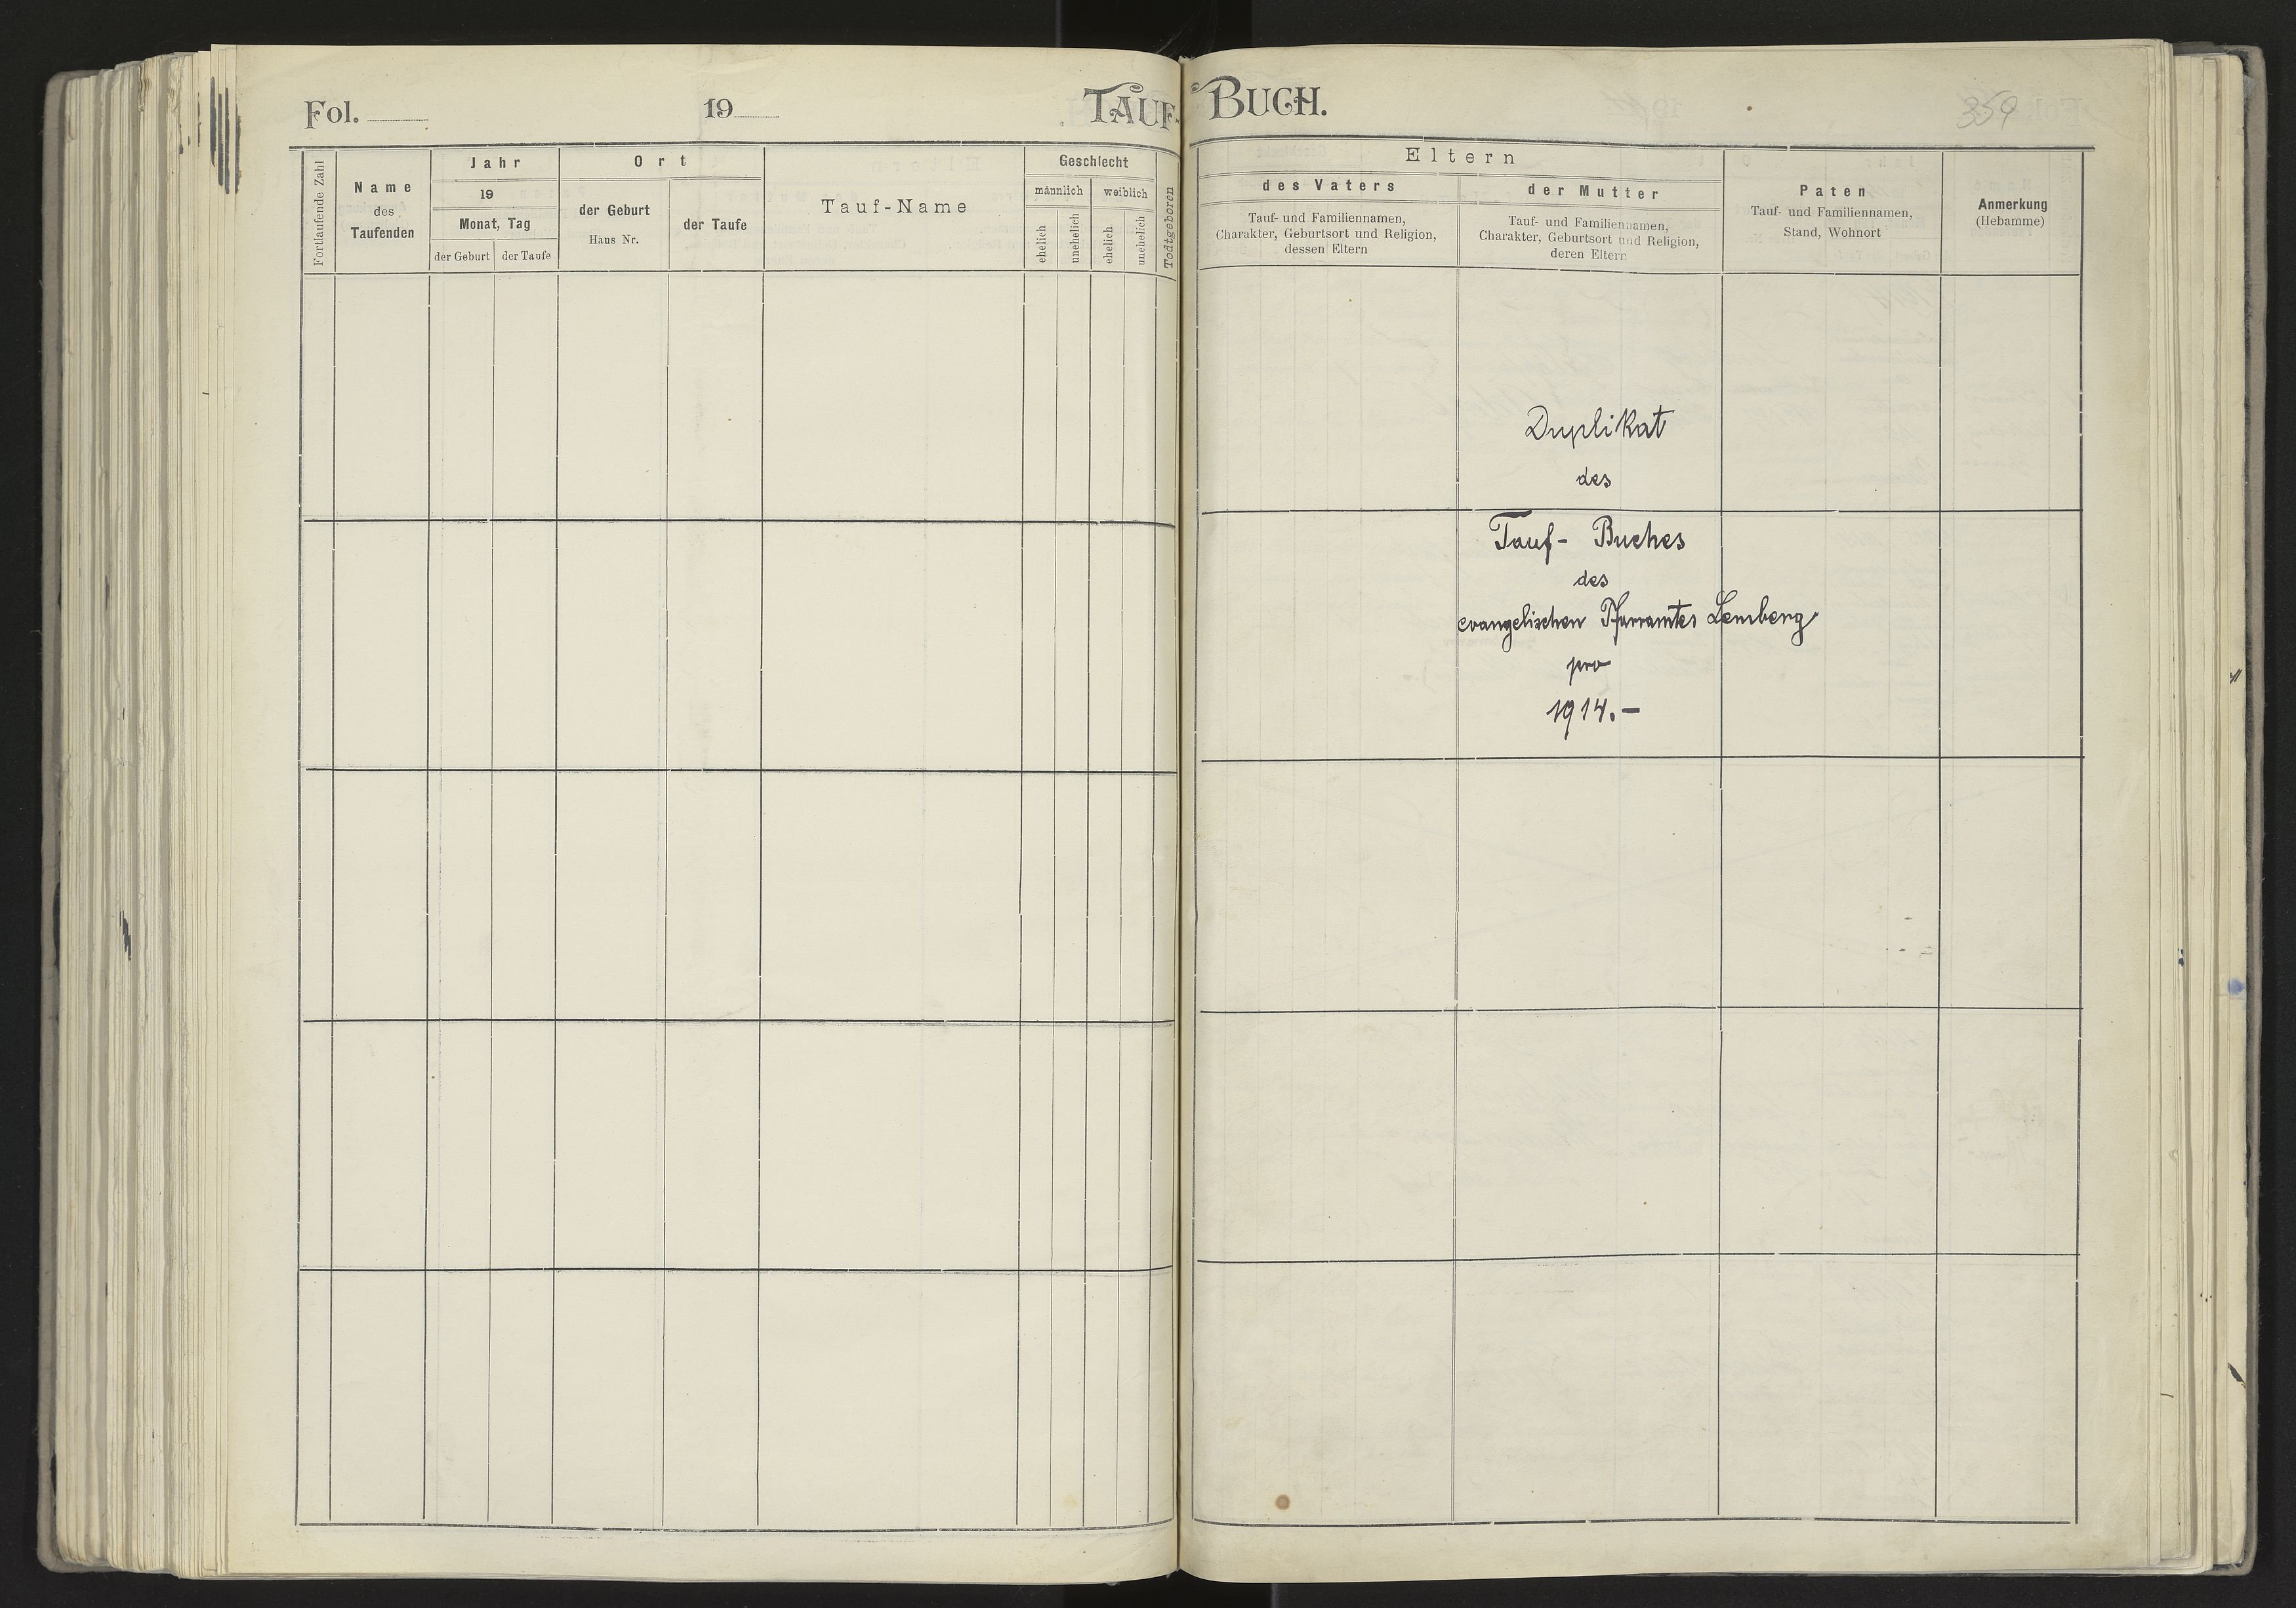 Fol. 19 TAUF- BUCH. 359
Fortlaufende Zahl
Name
des
Taufenden
Jahr
19
Monat, Tag
der Geburt der Taufe
Ort
der Geburt
Haus Nr.
der Taufe
Tauf-Name
Geschlecht
männlich weiblich
ehelich
unehelich
ehelich
unehelich
Todtgeboren
Eltern
des Vaters
Tauf- und Familiennamen,
Charakter, Geburtsort und Religion,
dessen Eltern
der Mutter
Tauf- und Familiennamen,
Charakter, Geburtsort und Religion,
deren Eltern
Paten
Tauf- und Familiennamen,
Stand, Wohnort
Anmerkung
(Hebamme)
Duplikat
des
Tauf- Buches
des
evangelischen Pfarramtes Lemberg
pro
1914.-